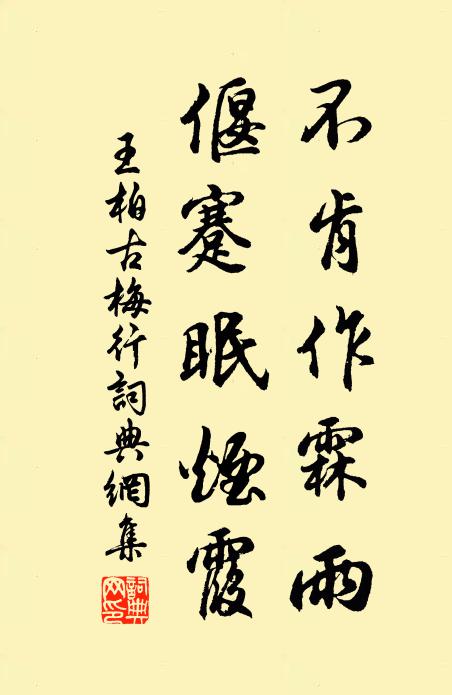 不肯作霖雨
偃蹇眠煙霞
王柏古梅行詞典網集
詞典网印